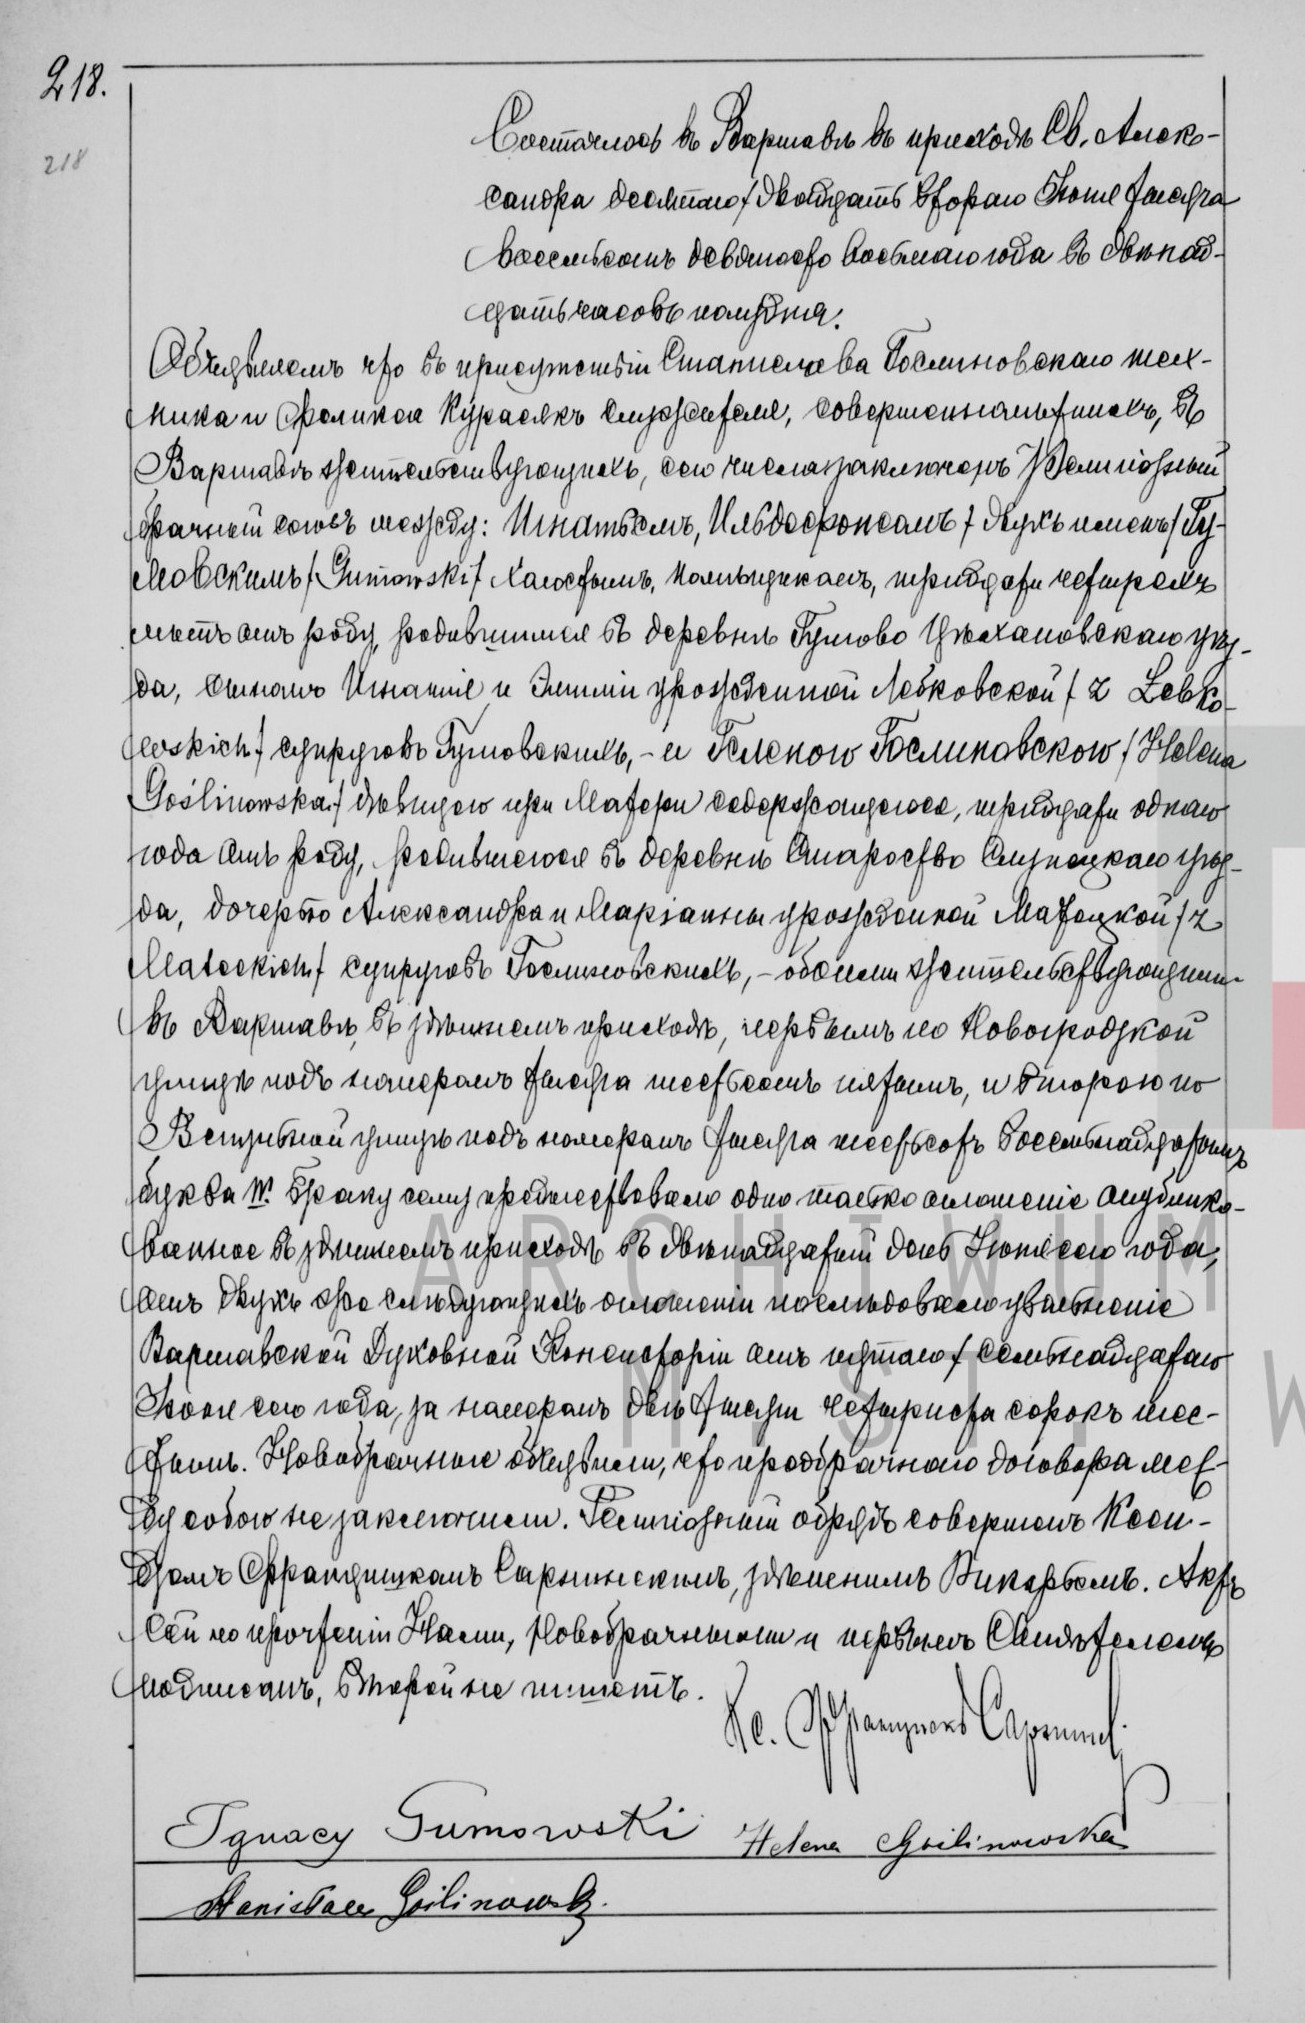 218.
218
Состоялось въ Варшавѣ въ приходѣ Св. Алек-
сандра десятаго / двадцать втораго Іюня тысяча
восемьсотъ девяносто восьмаго года въ двѣнад-
цать часовъ полудня.
Объявляемъ что въ присутствіи Станислава Гослиновскаго тех-
ника и Феликса Курасякъ служителя, совершеннолѣтнихъ, въ
Варшавѣ жительствующихъ, сего числа заключенъ Религіозный
брачный союзъ между: Игнатіемъ, Ильдефонсомъ / двухъ именъ / Гу-
мовскимъ / Gumowski / холостымъ, тридцати четырехъ
лѣтъ отъ роду, родившимся въ деревнѣ Гумово Цѣхановскаго уѣз-
да, сыномъ Игнатія и Эмиліи урожденной Лебковской / z Lebko-
wskich / супруговъ Гумовскихъ, – и Геленою Гослиновскою / Helena
Goślinowska / дѣвицею при Матери содержащеюся, тридцати одного
года отъ роду, родившеюся въ деревнѣ Староство Слупецкаго уѣз-
да, дочерью Александра и Маріанны урожденной Матецкой / z
Mateckich / супруговъ Гослиновскихъ, – обоими жительствующими
въ Варшавѣ, въ здѣшнемъ приходѣ, первымъ по Новогродзкой
улицѣ подъ номеромъ тысяча шестьсотъ пятымъ, и второю по
улицѣ подъ номеромъ тысяча шестьсотъ восемьнадцатымъ
буква W. Браку сему предшествовало одно только оглашеніе опублико-
ванное въ здѣшнемъ приходѣ въ двѣнадцатый день Іюня сего года,
отъ двухъ же слѣдующихъ оглашеній послѣдовало увольненіе
Варшавской Духовной Консисторіи отъ пятаго / семьнадцатаго
Іюня сего года, за номеромъ двѣ тысячи четыреста сорокъ шес-
тымъ. Новобрачные объявили, что предбрачнаго договора меж-
ду собою не заключили. Религіозный обрядъ совершенъ Ксен-
дзомъ Францишкомъ здѣшнимъ Викаріемъ. Актъ
сей по прочтеніи Нами, Новобрачными и первымъ Свидѣтелемъ
подписанъ, второй не пишетъ.
Кс. Францискъ
Ignacy Gumowski Helena Goślinowska
Stanisław Goślinowski.
ARCHIWUM
M. ST. W